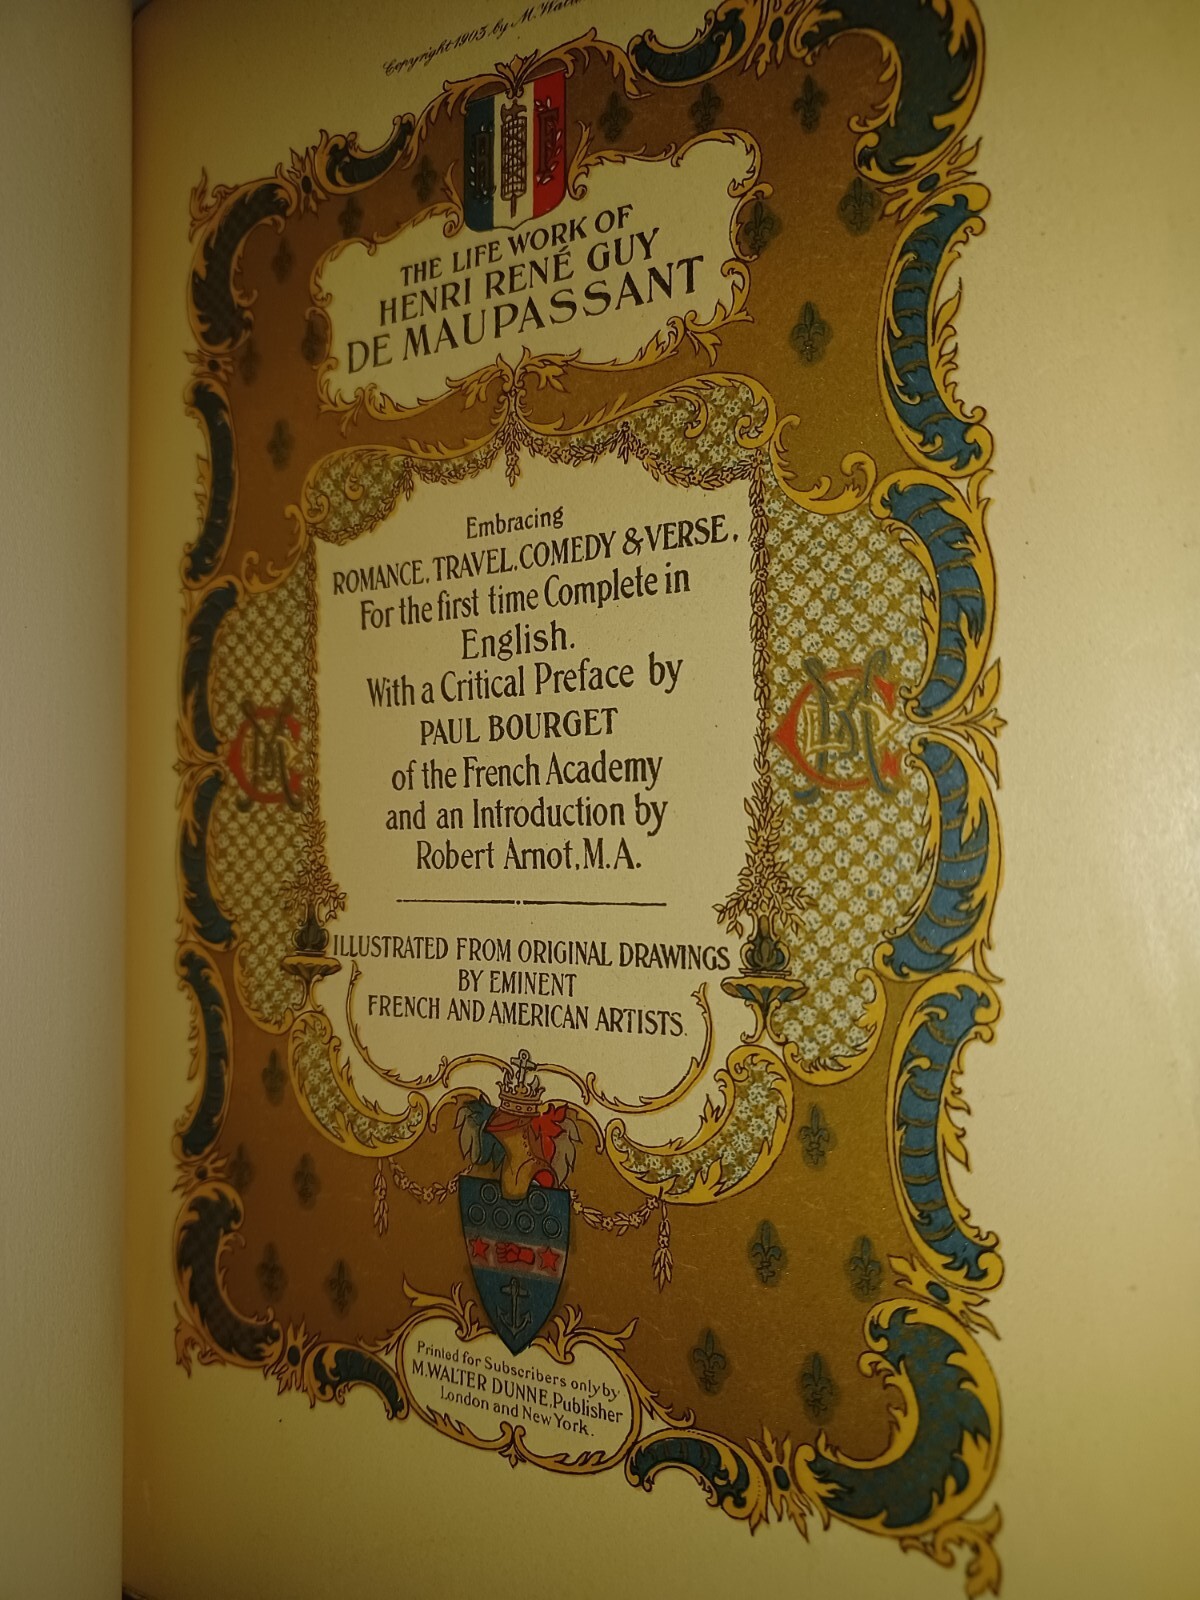 Copyright 1903, by M. Walter
THE LIFE WORK OF
HENRI RENÉ GUY
DE MAUPASSANT
Embracing
ROMANCE, TRAVEL, COMEDY & VERSE,
For the first time Complete in
English.
With a Critical Preface by
PAUL BOURGET
of the French Academy
and an Introduction by
Robert Arnot, M.A.
ILLUSTRATED FROM ORIGINAL DRAWINGS
BY EMINENT
FRENCH AND AMERICAN ARTISTS.
Printed for Subscribers only by
M. WALTER DUNNE, Publisher
London and New York.